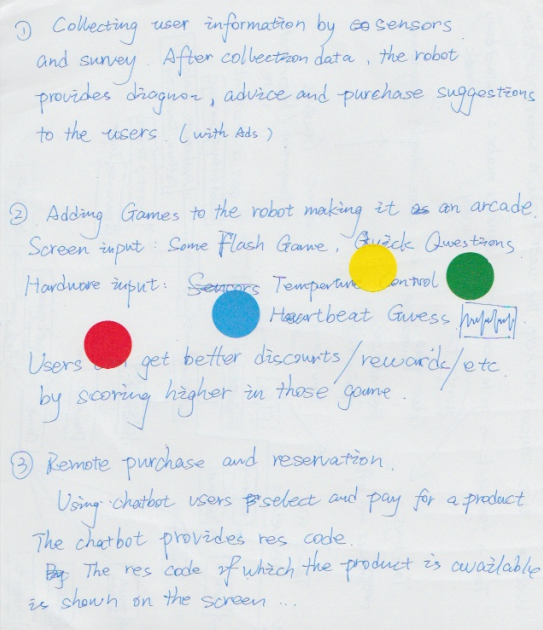 ① Collecting user information by sensors
and survey. After collection data, the robot
provides diagnor, advice and purchase suggestions
to the users. (with Ads)
② Adding Games to the robot making it as an arcade.
Screen input: Some Flash Game, Quick Questions
Hardware input: Sensors
Heartbeat Guess
Users get better discounts/rewards/etc.
by scoring higher in those game.
③ Remote purchase and reservation.
Using chatbot users select and pay for a product
The chatbot provides res code.
The res code of which the product is available
is shown on the screen ...